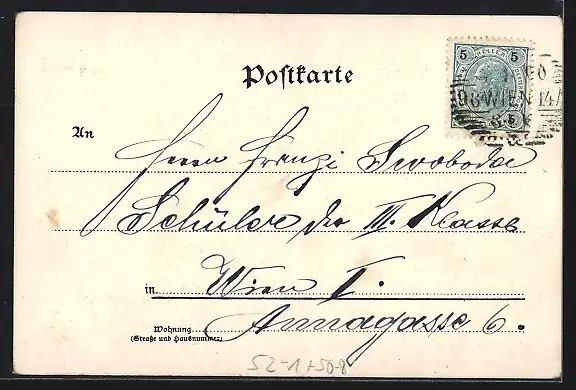 Postkarte
5 HELLER 5
WIEN 14/
An Herrn Franzi Swoboda
Schüler der III. Klasse
in Wien I.
Wohnung
(Straße und Hausnummer) Annagasse 6.
52-1